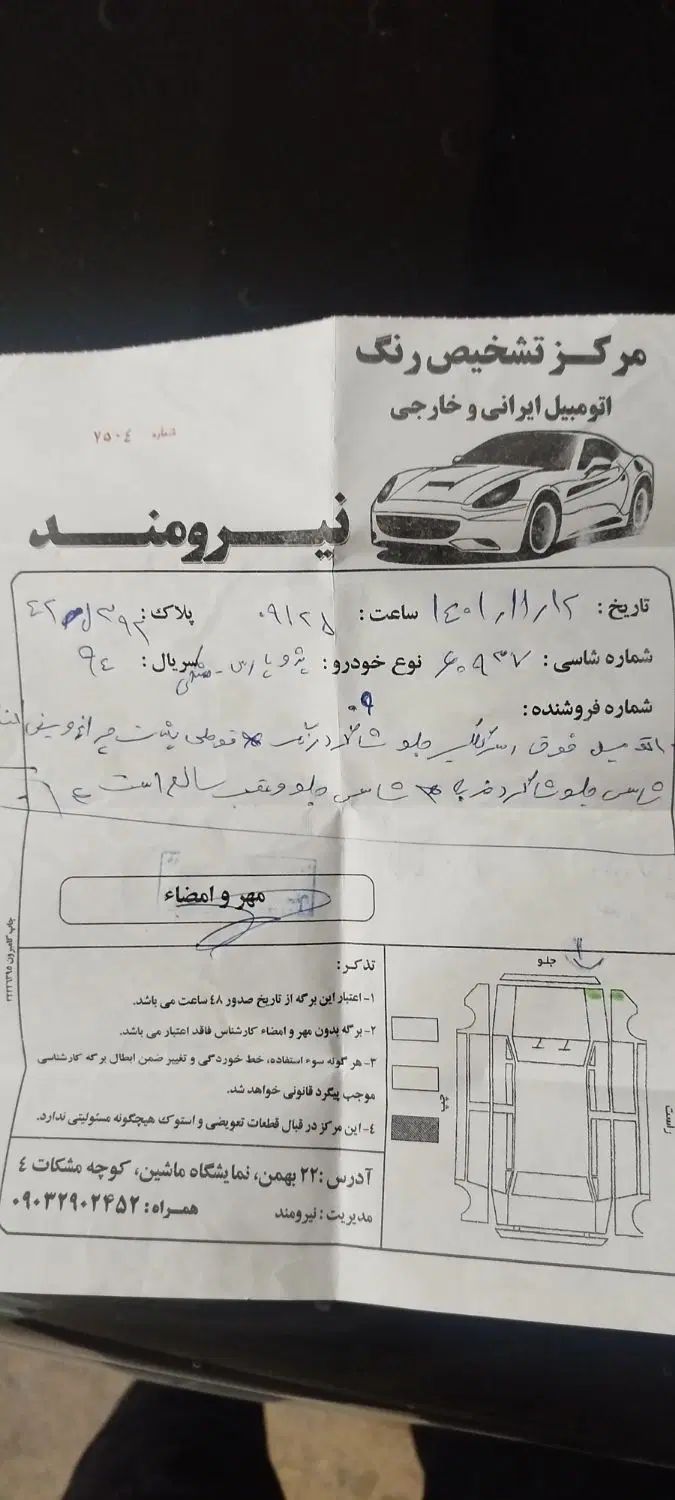 مرکز تشخیص رنگ
اتومبیل ایرانی و خارجی
شماره ۷۵۰۴
نیرومند
تاریخ: ۱۴۰۱/۱۱/۱۲ ساعت: ۰۹/۲۵ پلاک:
شماره شاسی: ۶۰۹۳۷ نوع خودرو: پژو پارس سریال: ۹۴
شماره فروشنده: ۰۹
اتومبیل فوق جلو شاگرد پشت چراغ
شاسی جلو شاگرد ضربه شاسی جلو و عقب سالم است
مهر و امضاء
تذکر:
۱- اعتبار این برگه از تاریخ صدور ۴۸ ساعت می باشد.
۲- برگه بدون مهر و امضاء کارشناس فاقد اعتبار می باشد.
۳- هر گونه سوء استفاده، خط خوردگی و تغییر ضمن ابطال برگه کارشناسی
موجب پیگرد قانونی خواهد شد.
۴- این مرکز در قبال قطعات تعویضی و استوک هیچگونه مسئولیتی ندارد.
آدرس: ۲۲ بهمن، نمایشگاه ماشین، کوچه مشکات ۴
مدیریت: نیرومند همراه: ۰۹۰۳۲۹۰۲۴۵۲
جلو
راست